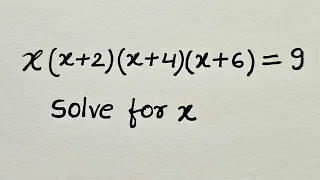 x(x+2)(x+4)(x+6)=9
Solve for x